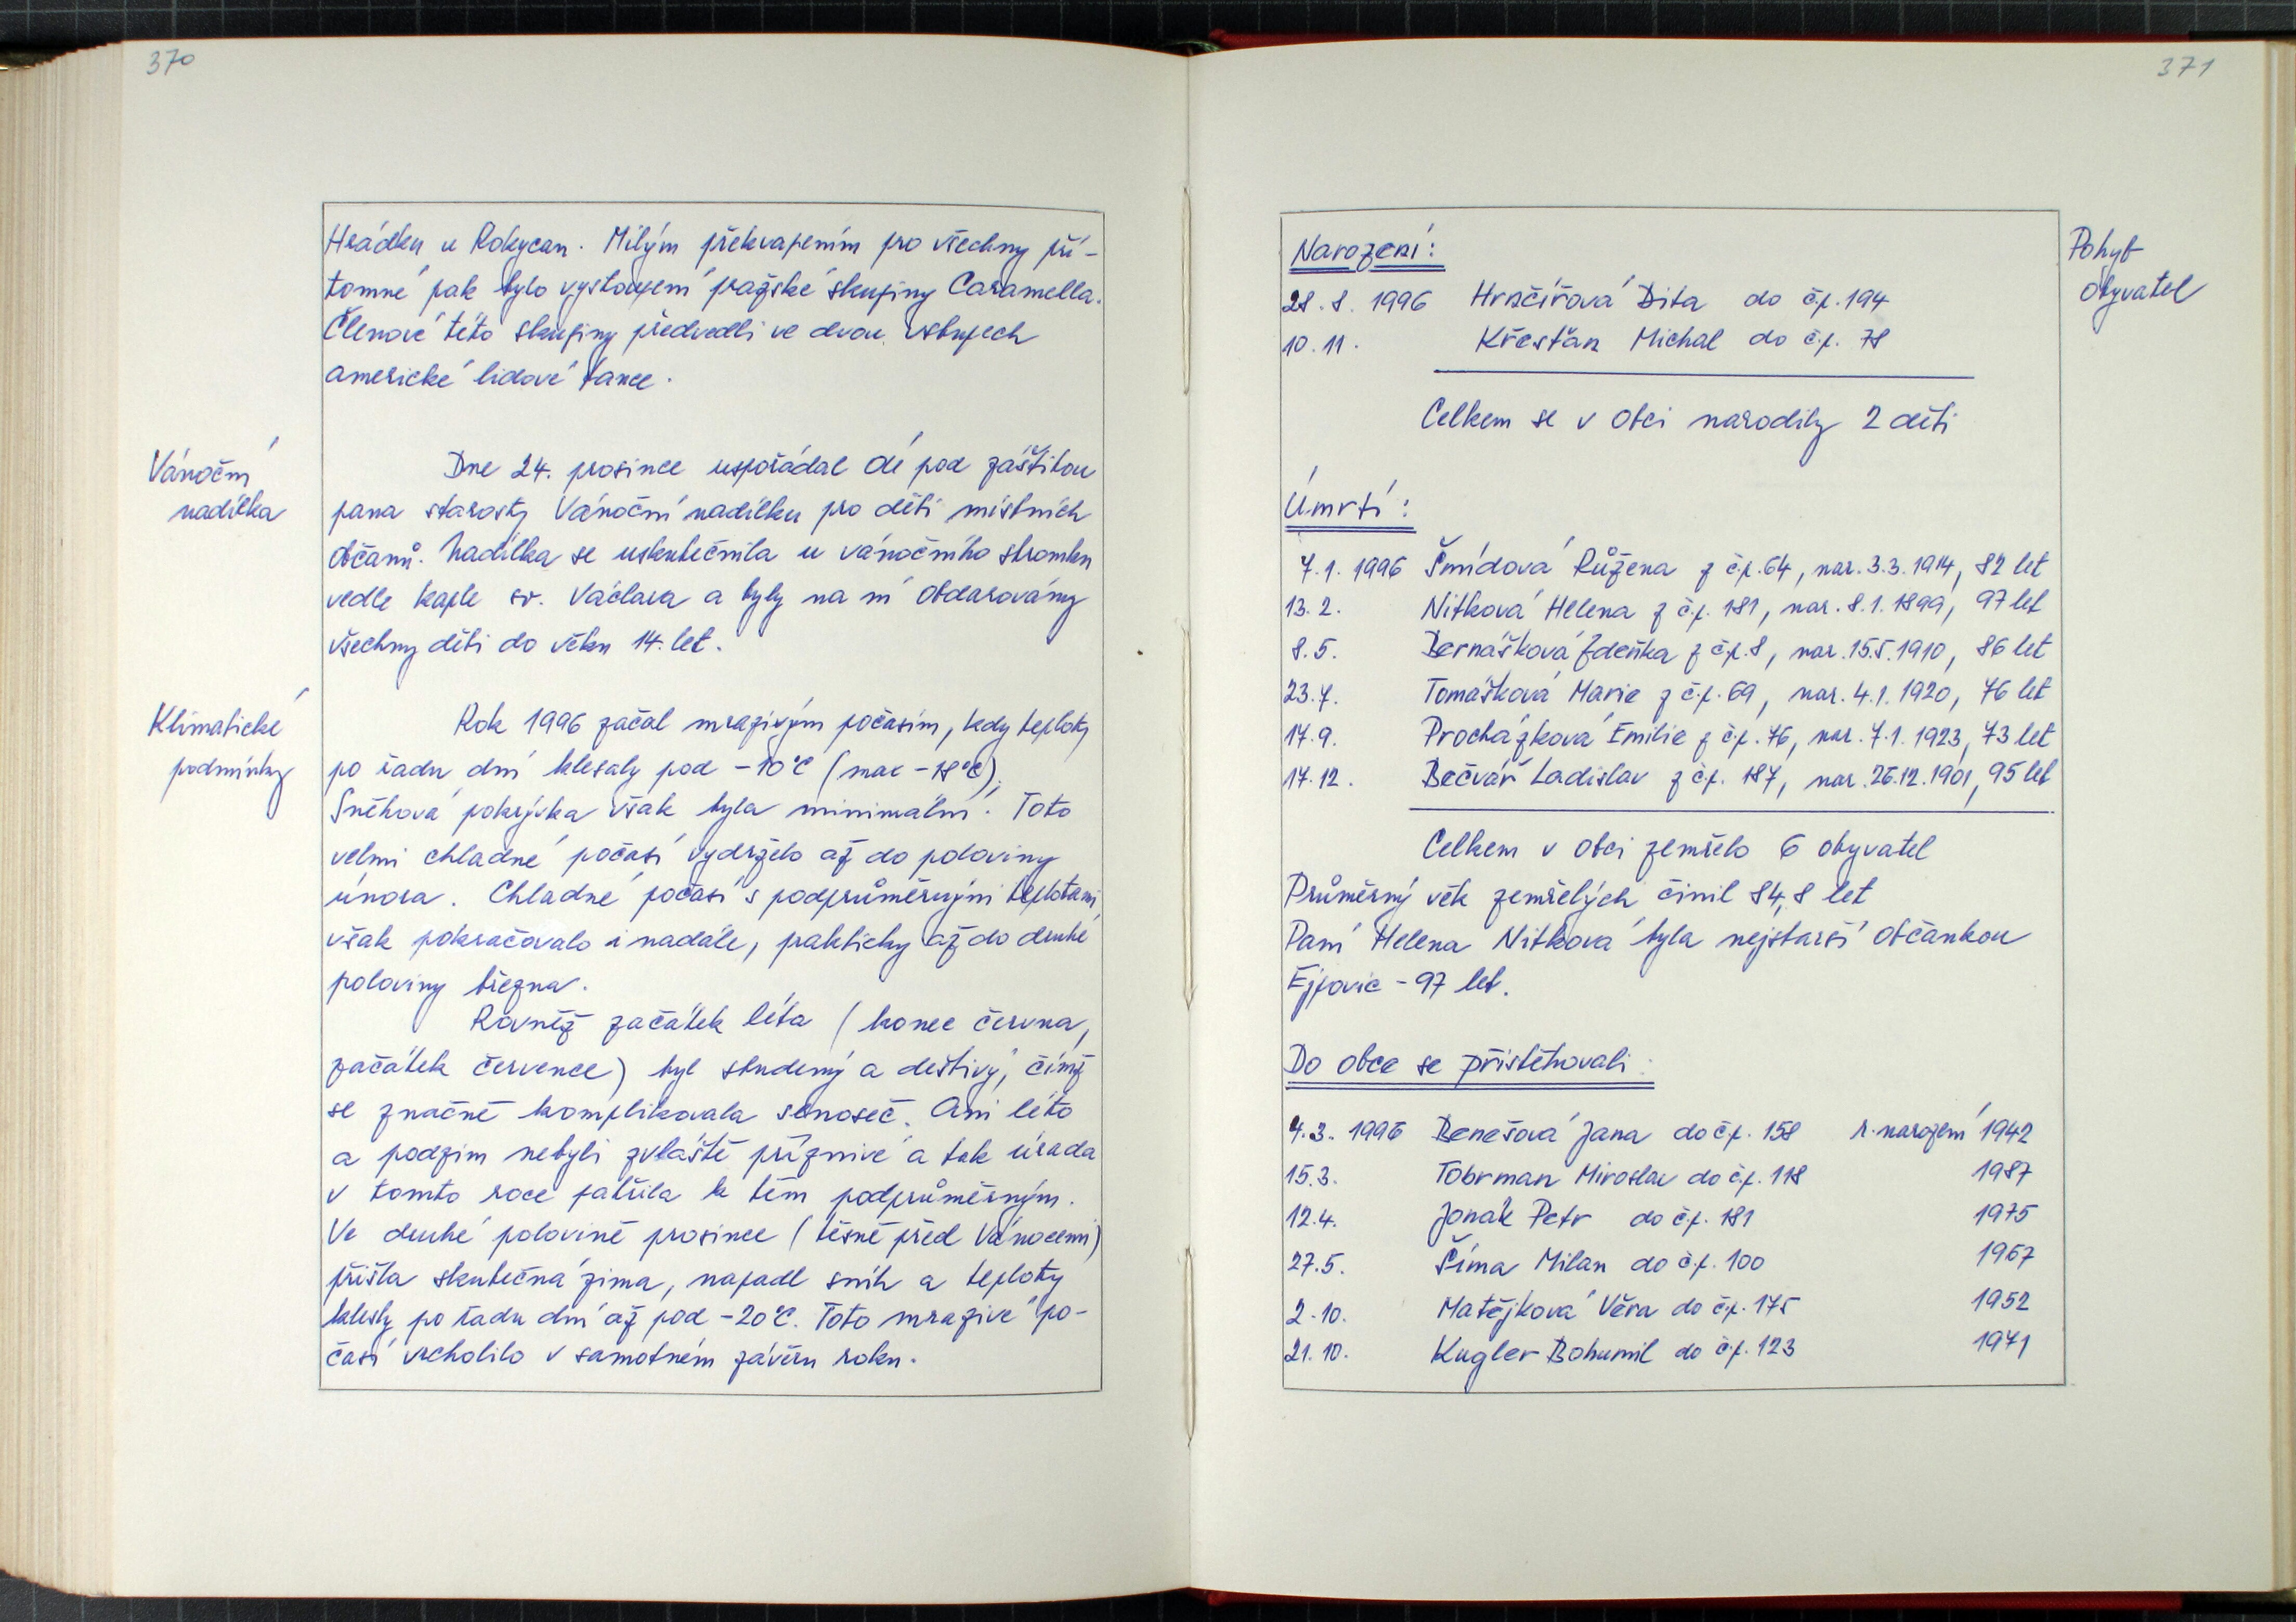 370
Hrádku u Rokycan. Milým překvapením pro všechny pří-
tomné pak bylo vystoupení pražské skupiny Caramella.
Členové této skupiny předvedli ve dvou vstupech
americké lidové tance.
Vánoční
nadílka
Dne 24. prosince uspořádal OÚ pod záštitou
pana starosty Vánoční nadílku pro děti místních
občanů. Nadílka se uskutečnila u vánočního stromku
vedle kaple sv. Václava a byly na ní obdarovány
všechny děti do věku 14. let.
Klimatické
podmínky
Rok 1996 začal mrazivým počasím, kdy teploty
po řadu dní klesaly pod -10°C (max -18°C),
Sněhová pokrývka však byla minimální. Toto
velmi chladné počasí vydrželo až do poloviny
února. Chladné počasí s podprůměrnými teplotami
však pokračovalo i nadále, prakticky až do druhé
poloviny března.
Rovněž začátek léta (konec června,
začátek července) byl studený a deštivý, čímž
se značně komplikovala senoseč. Ani léto
a podzim nebyli zvláště příznivé a tak úroda
v tomto roce patřila k těm podprůměrným.
Ve druhé polovině prosince (těsně před Vánocemi)
přišla skutečná zima, napadl sníh a teploty
klesly po řadu dní až pod -20°C. Toto mrazivé po-
časí vrcholilo v samotném závěru roku.
371
Pohyb
obyvatel
Narození:
28.8. 1996 Hrnčířová Dita do č.p. 194
10.11. Křesťan Michal do č.p. 78
Celkem se v obci narodily 2 děti
Úmrtí:
7.1. 1996 Šmídová Růžena z č.p. 64, nar. 3.3. 1914, 82 let
13.2. Nitková Helena z č.p. 181, nar. 8.1. 1899, 97 let
8.5. Bernášková Zdeňka z č.p. 8, nar. 15.5. 1910, 86 let
23.7. Tomášková Marie z č.p. 69, nar. 4.1. 1920, 76 let
17.9. Procházková Emilie z č.p. 76, nar. 7.1. 1923, 73 let
17.12. Bečvář Ladislav z č.p. 187, nar. 26.12. 1901, 95 let
Celkem v obci zemřelo 6 obyvatel
Průměrný věk zemřelých činil 84,8 let
Paní Helena Nitková byla nejstarší občankou
Ejpovic - 97 let.
Do obce se přistěhovali:
4.3. 1996 Benešová Jana do č.p. 158 r. narození 1942
15.3. Tobrman Miroslav do č.p. 118 1987
12.4. Jonák Petr do č.p. 181 1975
27.5. Šíma Milan do č.p. 100 1967
2.10. Matějková Věra do č.p. 175 1952
21.10. Kugler Bohumil do č.p. 123 1971